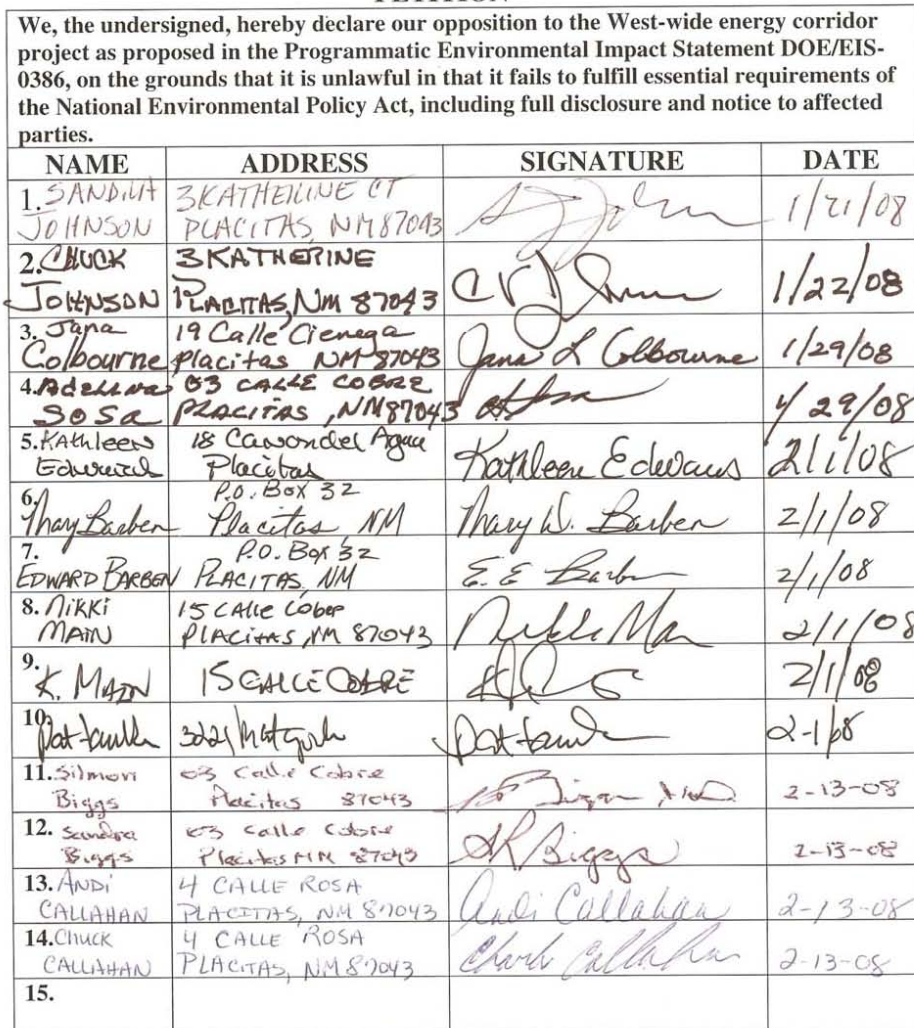 We, the undersigned, hereby declare our opposition to the West-wide energy corridor
project as proposed in the Programmatic Environmental Impact Statement DOE/EIS-
0386, on the grounds that it is unlawful in that it fails to fulfill essential requirements of
the National Environmental Policy Act, including full disclosure and notice to affected
parties.
NAME ADDRESS SIGNATURE DATE
1. SANDRA 3 KATHERINE CT
JOHNSON PLACITAS, NM 87043 1/21/08
2. CHUCK 3 KATHERINE
JOHNSON PLACITAS, NM 87043 1/22/08
3. Jana 19 Calle Cienega
Colbourne Placitas NM 87043 Jana L Colbourne 1/29/08
4. Adelina 03 CALLE COBRE
SOSA PLACITAS, NM 87043 1/29/08
5. Kathleen 18 Agua
Edwards Placitas Kathleen Edwards 2/1/08
6. P.O. Box 32
Mary Barben Placitas NM Mary W. Barben 2/1/08
7. P.O. Box 32
EDWARD BARBEN PLACITAS, NM E. E Barben 2/1/08
8. Nikki 15 Calle
MAIN PLACITAS, NM 87043 Nikki Main 2/1/08
9.
K. MAIN 15 CALLE COBRE 2/1/08
10.
Pat 3221 Pat 2-1-08
11. Silmon 03 Calle Cobre
Biggs Placitas 87043 2-13-08
12. Sandra 03 Calle Cobre
Biggs Placitas NM 87043 SR Biggs 2-13-08
13. ANDI 4 CALLE ROSA
CALLAHAN PLACITAS, NM 87043 Andi Callahan 2-13-08
14. Chuck 4 CALLE ROSA
CALLAHAN PLACITAS, NM 87043 Chuck Callahan 2-13-08
15.